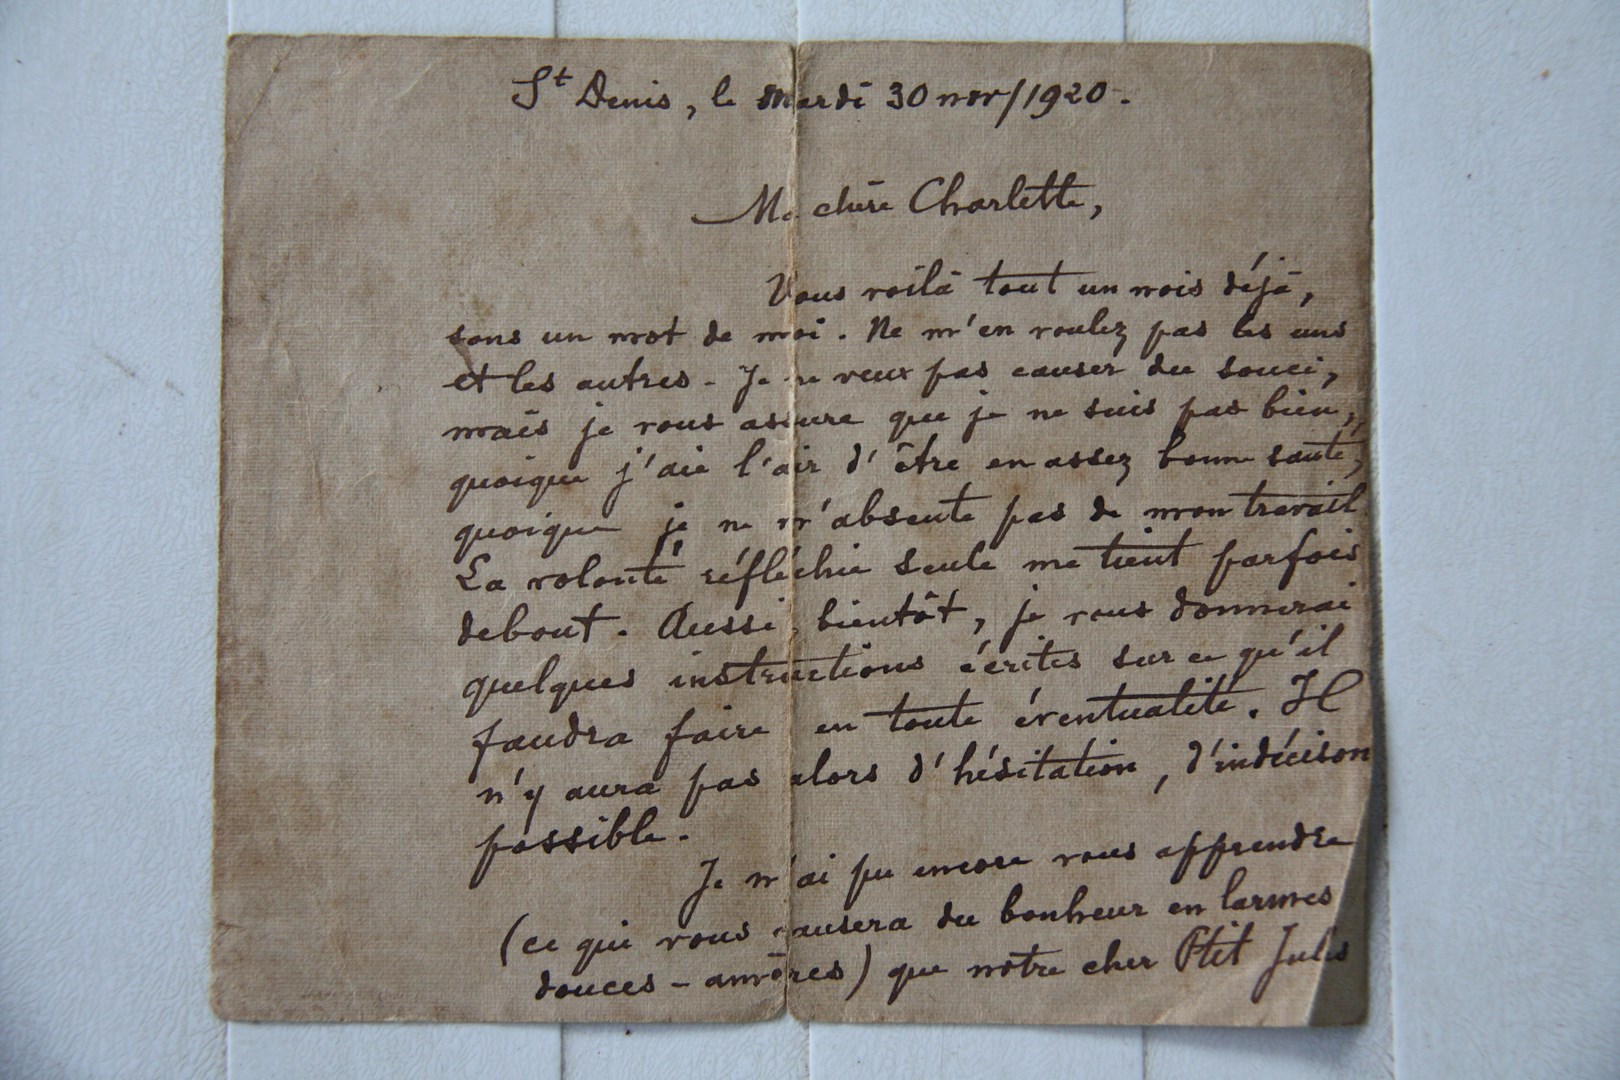 St Denis, le Mardi 30 nov/1920.
Ma chère Charlette,
Vous voilà tout un mois déjà,
sans un mot de moi. Ne m'en voulez pas les uns
et les autres - Je ne veux pas causer du souci,
mais je vous assure que je ne suis pas bien,
quoique j'aie l'air d'être en assez bonne santé,
quoique je ne m'absente pas de mon travail
La volonté réfléchie seule me tient parfois
debout. Aussi, bientôt, je vous donnerai
quelques instructions écrites sur ce qu'il
faudra faire en toute éventualité. Il
n'y aura pas alors d'hésitation, d'indécison
possible.
Je n'ai pu encore vous apprendre
(ce qui vous causera du bonheur en larmes
douces - amères) que notre cher Ptit Jules